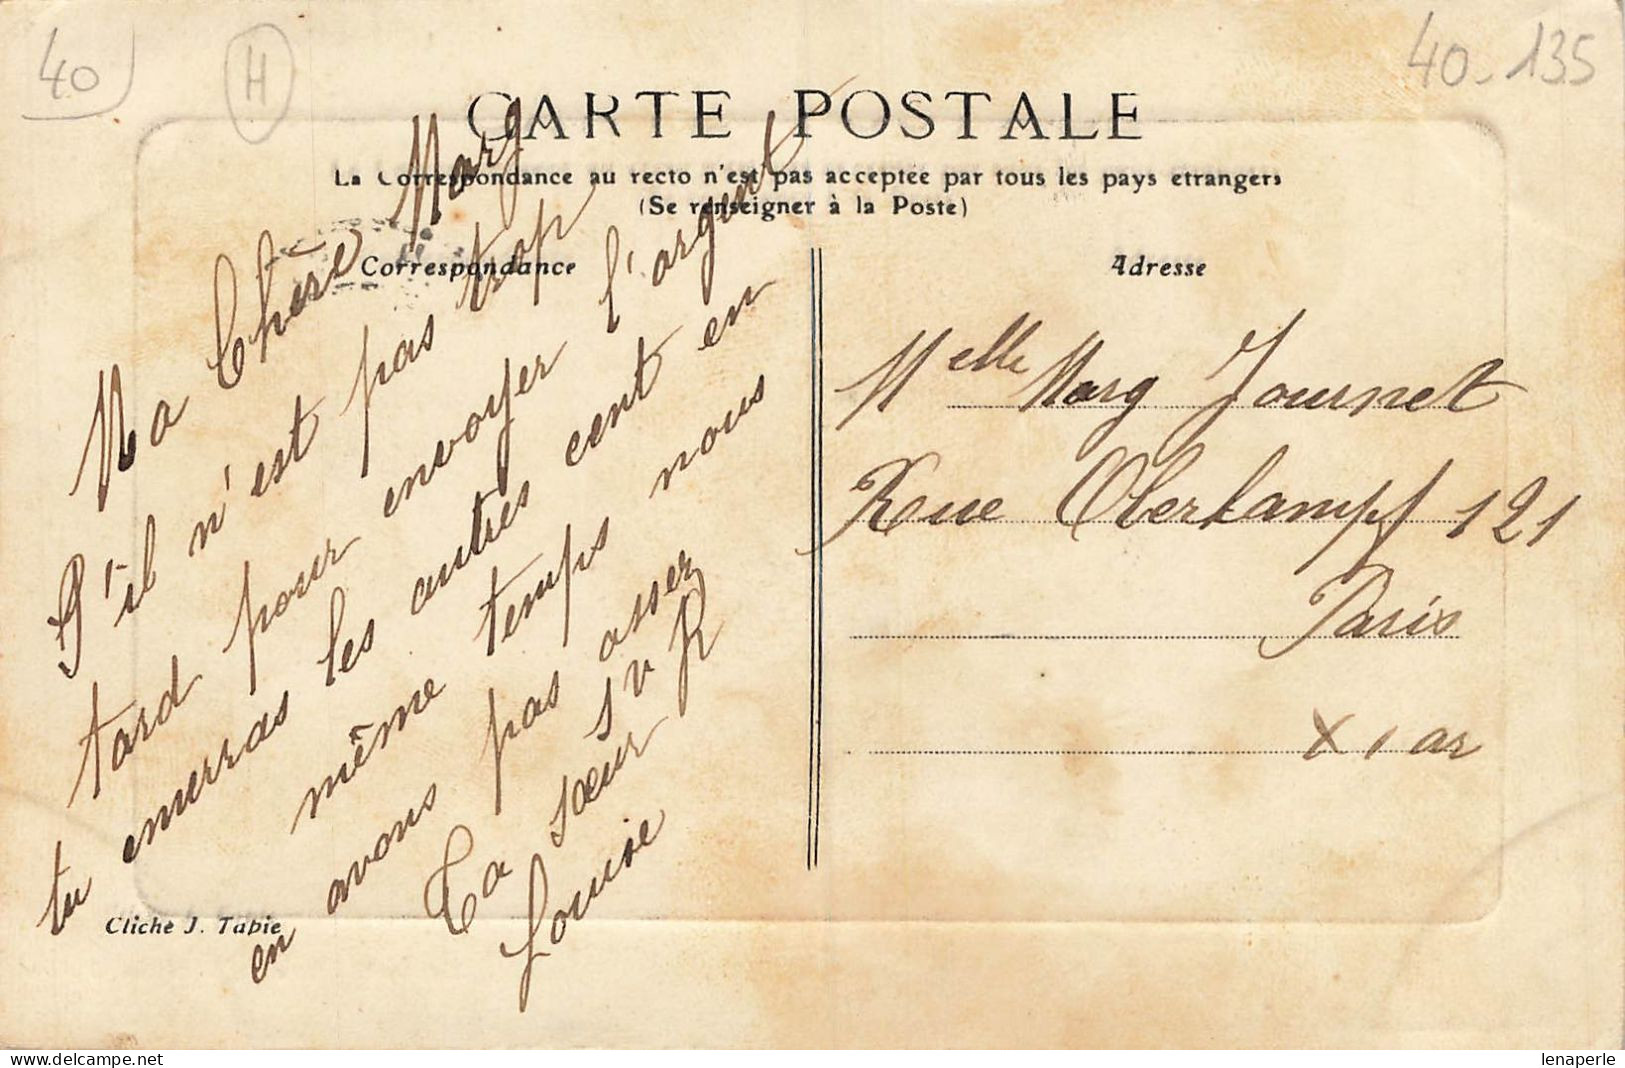 40
H
40-135
CARTE POSTALE
La Correspondance au recto n'est pas acceptée par tous les pays etrangers
(Se renseigner à la Poste)
Correspondance
Ma Chère Marg
S'il n'est pas trop
tard pour envoyer l'argent
tu enverras les autres cent en
même temps nous
en avons pas asser
S V R
Ta sœur
Louise
Cliché J. Tabie
Adresse
Melle Marg Journet
Rue Oberkampf 121
Paris
X I ar
delcampe.net
lenaperle